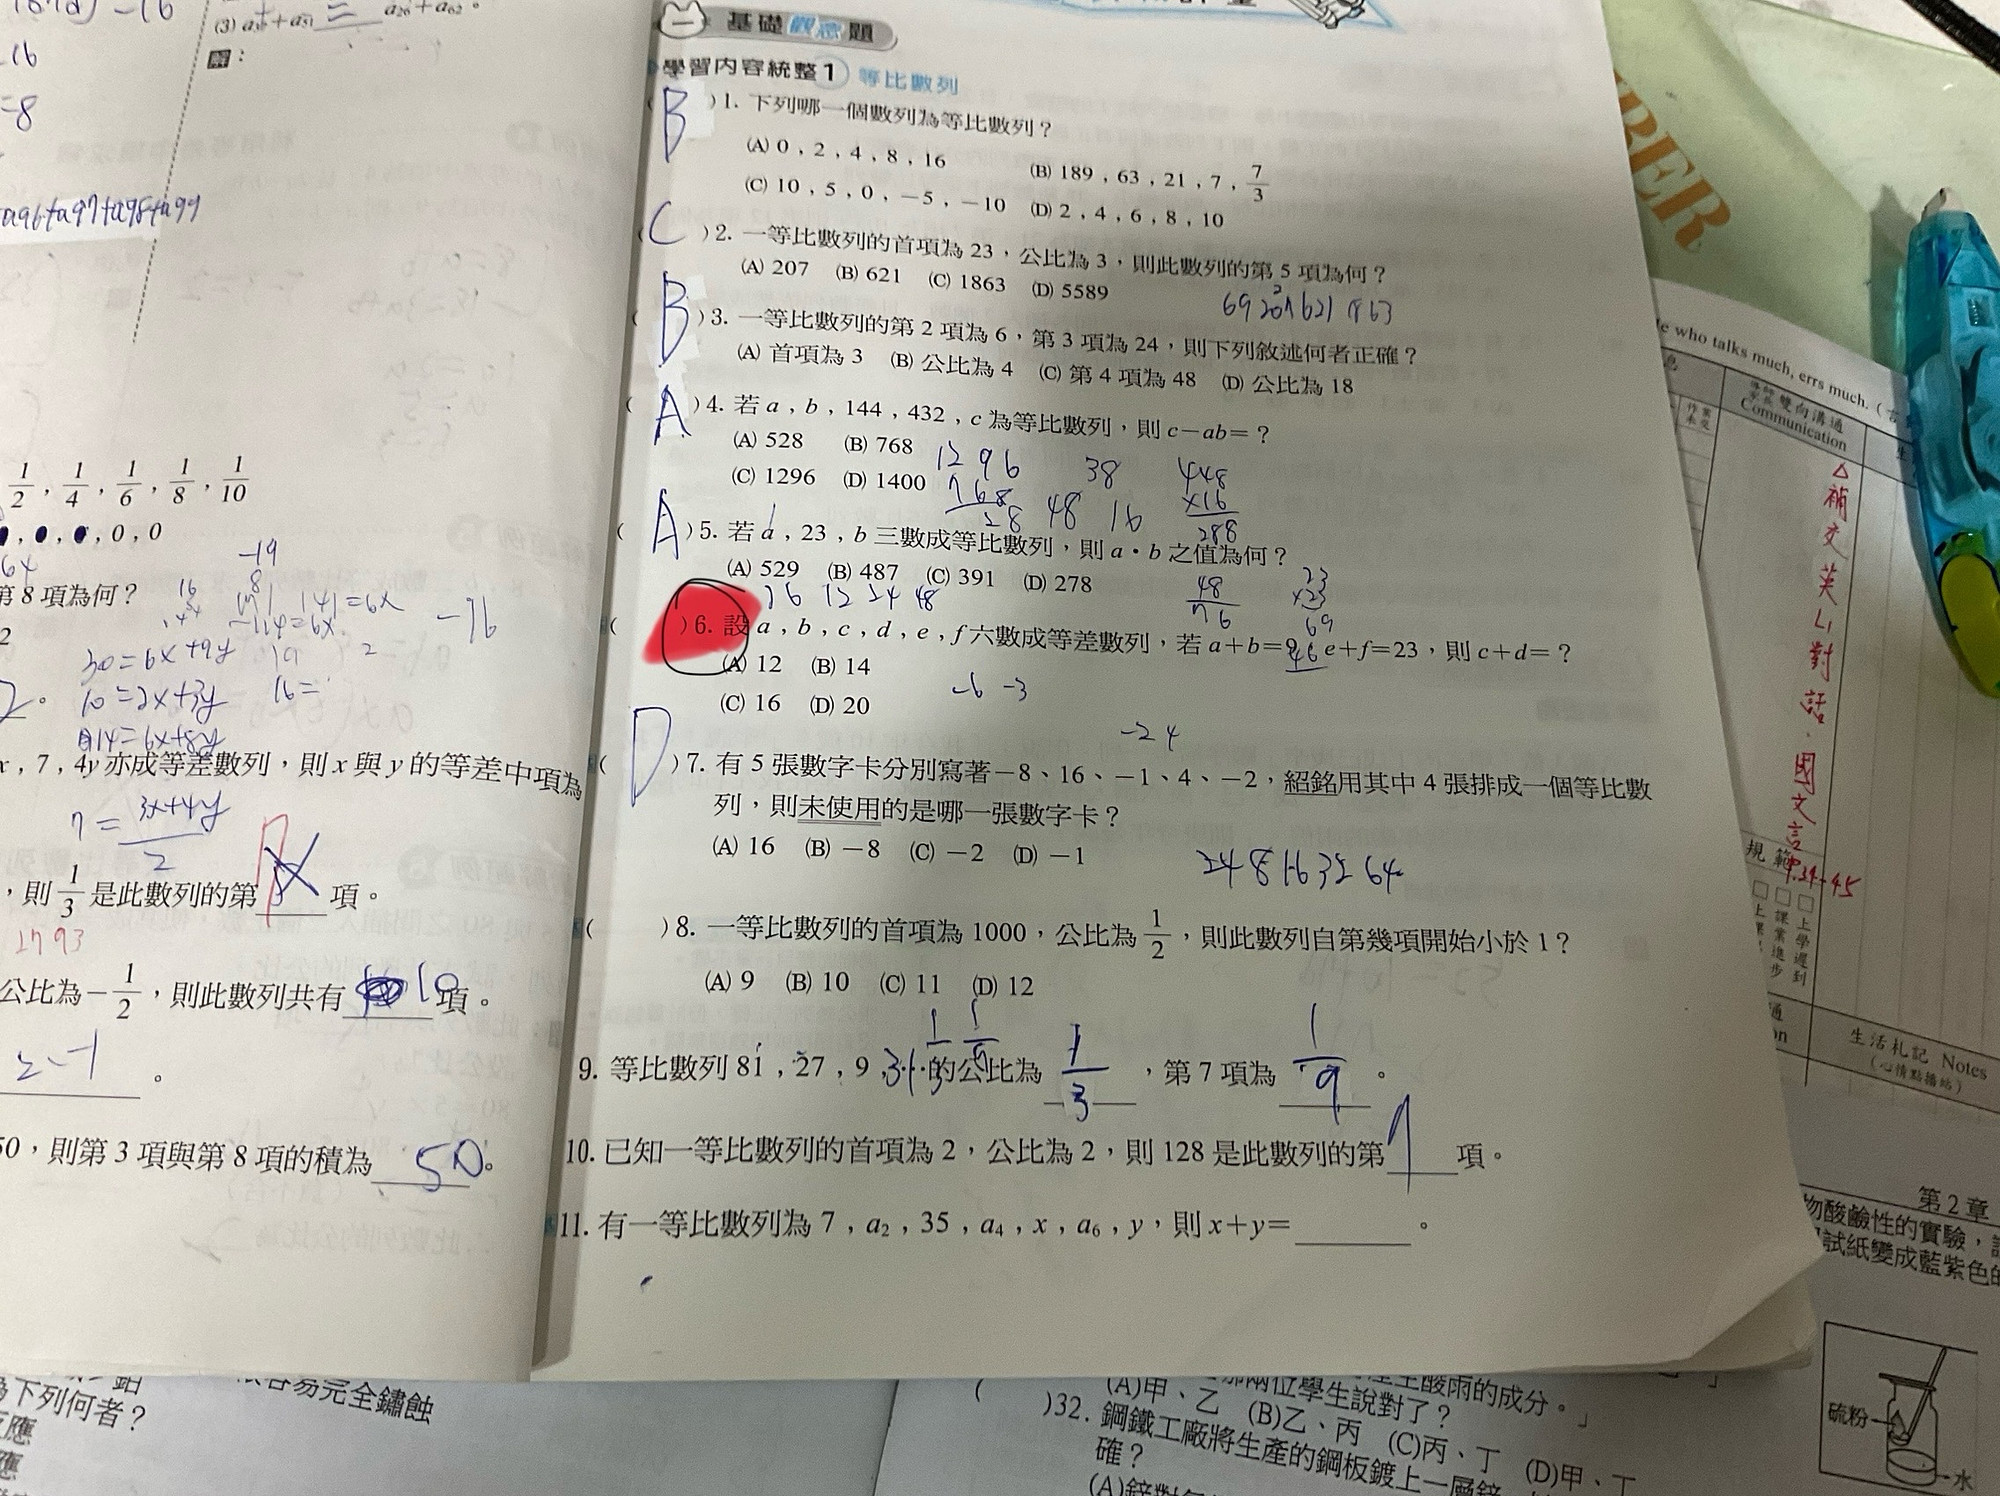 (3) a₃₇+a₅₁= a₂₆+a₆₂。
解：
-16
16
=8
a96+a97+a98+a99
1/2 , 1/4 , 1/6 , 1/8 , 1/10
, 0 , 0
64
-19
第 8 項為何？
141=6x
-114=6x
-76
30=6x+9y
10=2x+3y
16=
14=6x+8y
x , 7 , 4y 亦成等差數列，則 x 與 y 的等差中項為
7=(3x+4y)/2
，則 1/3 是此數列的第 項。
27 9 3
公比為 -1/2，則此數列共有 10 項。
50，則第 3 項與第 8 項的積為 50。
一 基礎觀念題
學習內容統整 1 等比數列
( B ) 1. 下列哪一個數列為等比數列？
(A) 0 , 2 , 4 , 8 , 16 (B) 189 , 63 , 21 , 7 , 7/3
(C) 10 , 5 , 0 , −5 , −10 (D) 2 , 4 , 6 , 8 , 10
( C ) 2. 一等比數列的首項為 23，公比為 3，則此數列的第 5 項為何？
(A) 207 (B) 621 (C) 1863 (D) 5589
69 207 621 1863
( B ) 3. 一等比數列的第 2 項為 6，第 3 項為 24，則下列敘述何者正確？
(A) 首項為 3 (B) 公比為 4 (C) 第 4 項為 48 (D) 公比為 18
( A ) 4. 若 a , b , 144 , 432 , c 為等比數列，則 c−ab=？
(A) 528 (B) 768
(C) 1296 (D) 1400
1296 38 448
768 48 16 ×16
28 288
( A ) 5. 若 a , 23 , b 三數成等比數列，則 a・b 之值為何？
(A) 529 (B) 487 (C) 391 (D) 278
76 12 24 48
48 23
76 ×23
69
46
( ) 6. 設 a , b , c , d , e , f 六數成等差數列，若 a+b=9，e+f=23，則 c+d=？
(A) 12 (B) 14
(C) 16 (D) 20
-6 -3
-24
( D ) 7. 有 5 張數字卡分別寫著−8、16、−1、4、−2，紹銘用其中 4 張排成一個等比數
列，則未使用的是哪一張數字卡？
(A) 16 (B) −8 (C) −2 (D) −1
2 4 8 16 32 64
( ) 8. 一等比數列的首項為 1000，公比為 1/2，則此數列自第幾項開始小於 1？
(A) 9 (B) 10 (C) 11 (D) 12
9. 等比數列 81 , 27 , 9 , …的公比為 1/3，第 7 項為 1/9。
10. 已知一等比數列的首項為 2，公比為 2，則 128 是此數列的第 7 項。
11. 有一等比數列為 7 , a₂ , 35 , a₄ , x , a₆ , y，則 x+y= 。
BER
who talks much, errs much.
雙向溝通
Communication
補交英L1對話、國文言P.34-45
規範
上學遲到
課業進步
生活札記 Notes
(心情點播站)
第 2 章
物酸鹼性的實驗，
試紙變成藍紫色的
硫粉
水
鉛
為下列何者？
容易完全鏽蝕
酸雨的成分。」
那兩位學生說對了？
(A)甲、乙 (B)乙、丙 (C)丙、丁 (D)甲、丁
( )32. 鋼鐵工廠將生產的鋼板鍍上一層鋅
確？